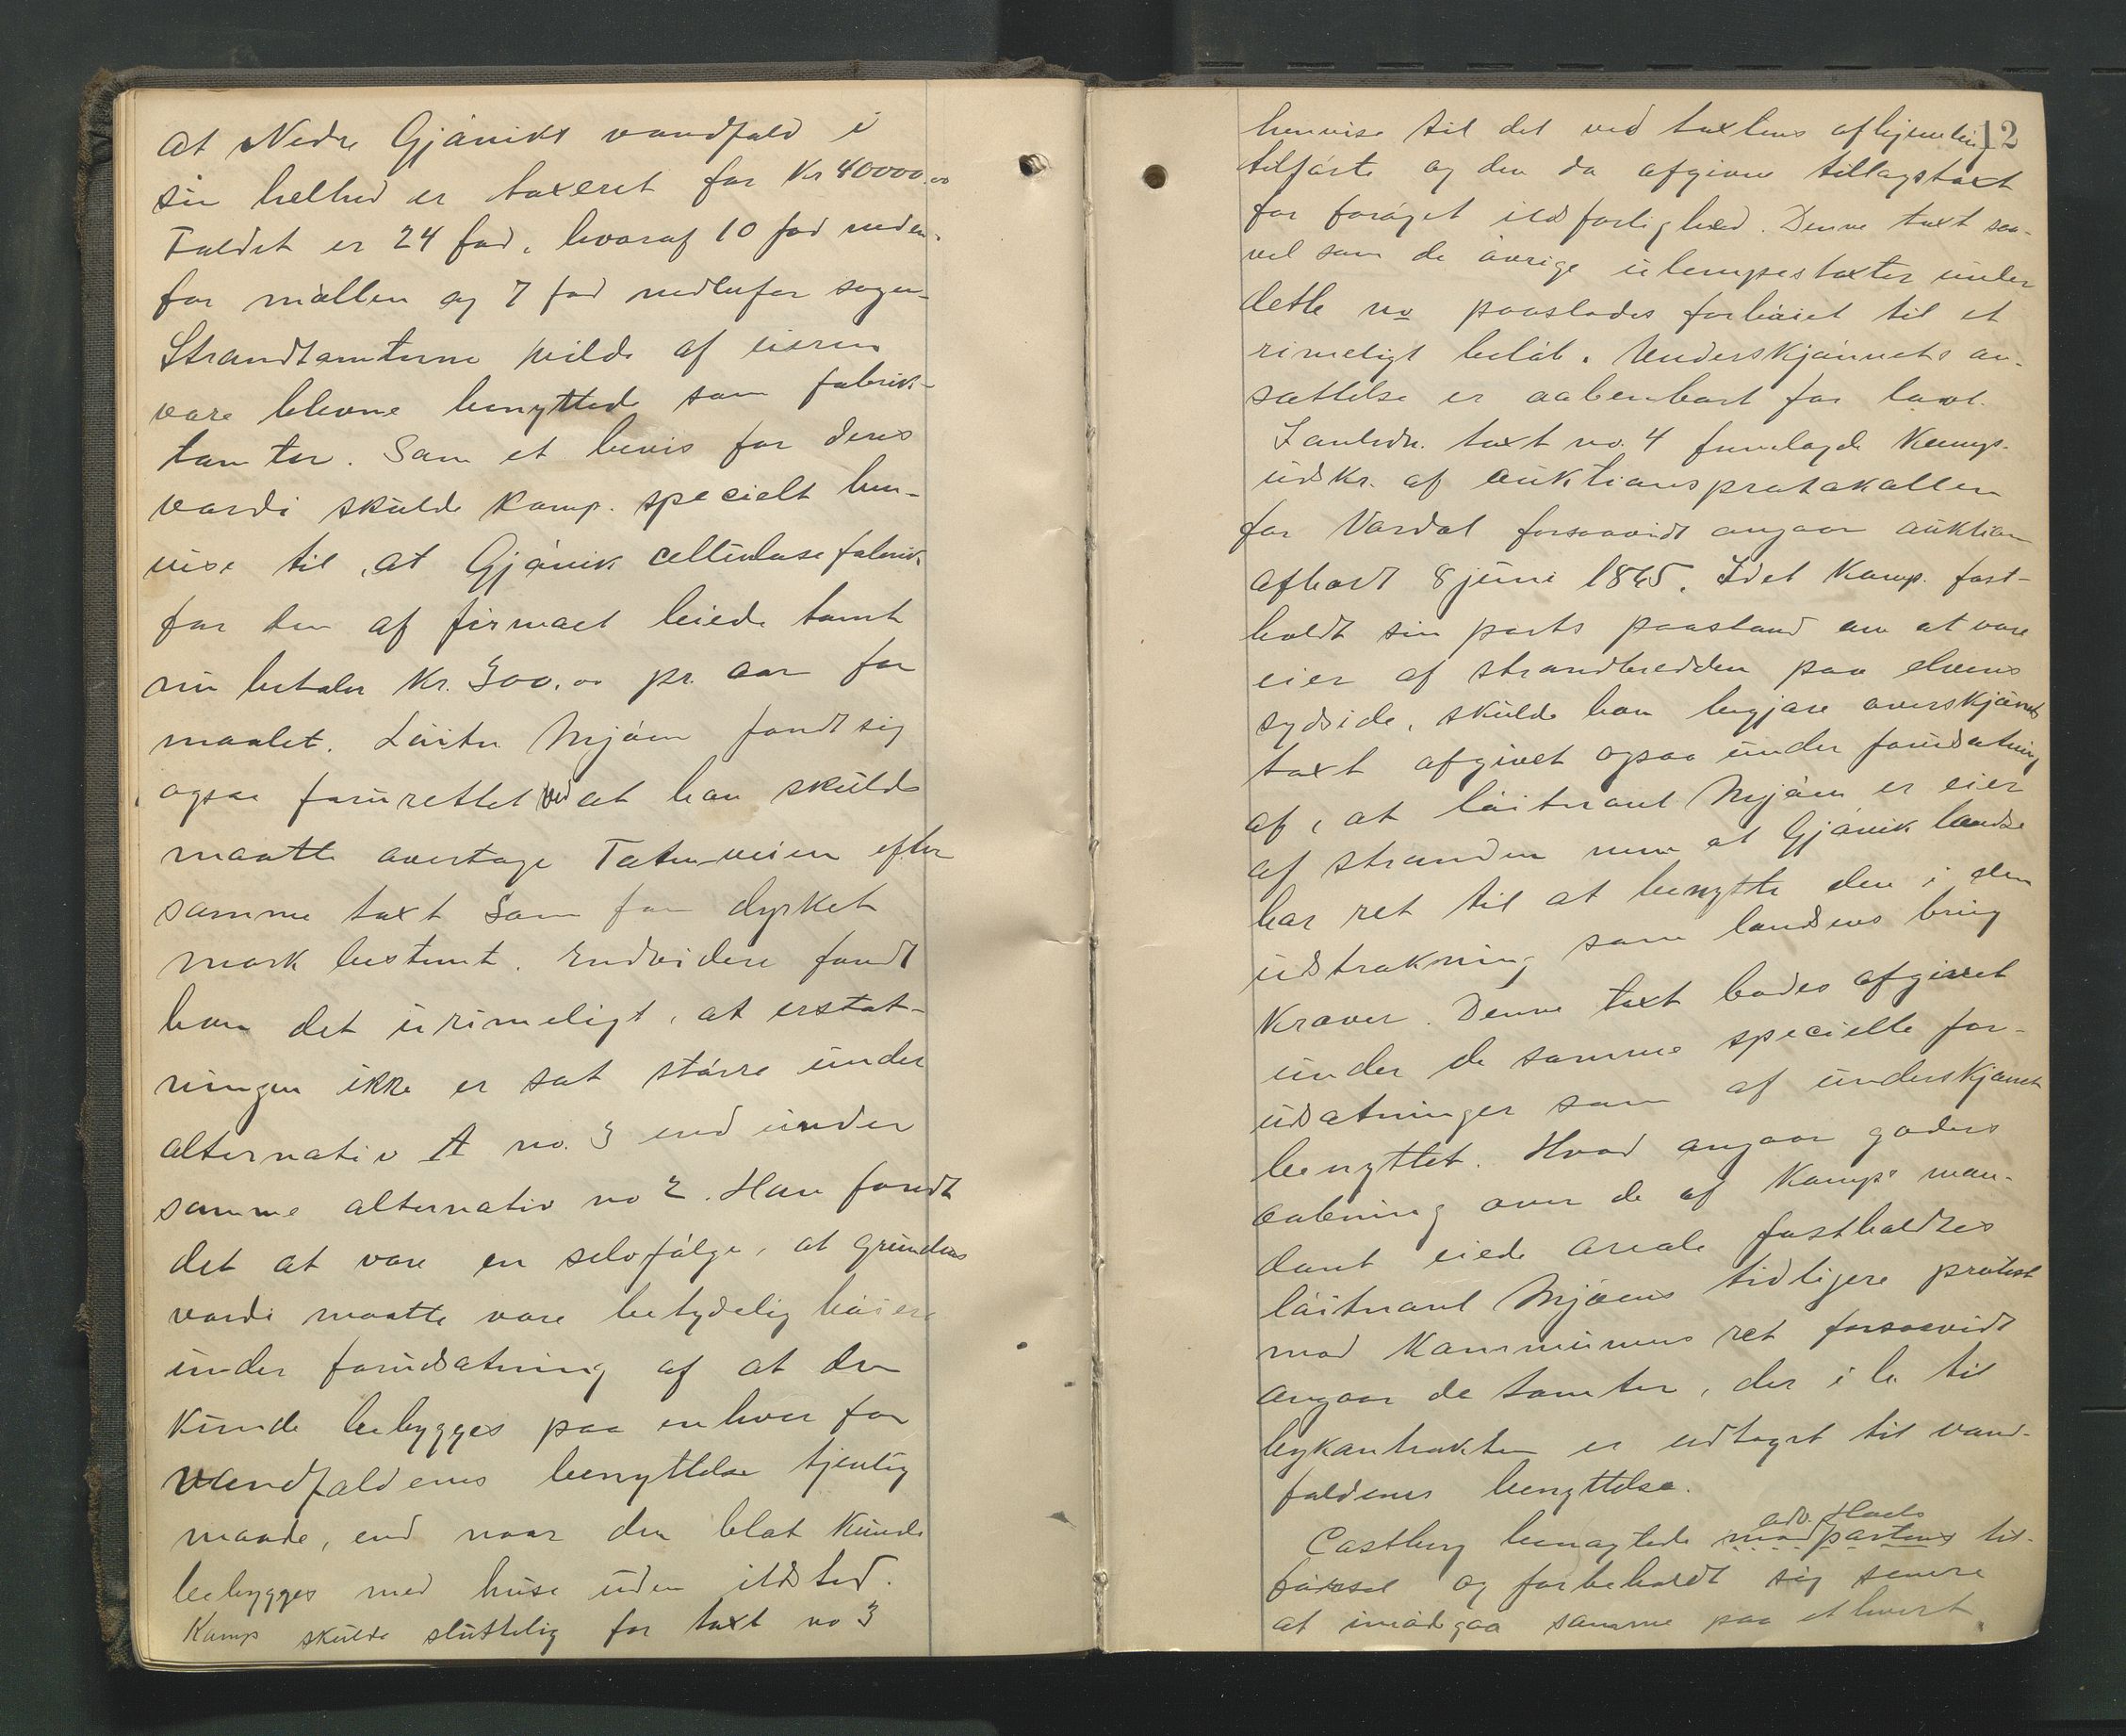 at Nedre Gjøviks vandfald i
sin helhed er taxeret for Kr 40000.00
Faldet er 24 fod, hvoraf 10 fod neden-
for møllen og 7 fod nedenfor sagen.
Strandtomterne vilde af eieren
være blevne benyttede som fabrik-
tomter. Som et bevis for deres
værdi skulde Kamp. specielt hen-
vise til, at Gjøvik cellulosefabrik
for den af firmaet leiede tomt
nu betaler Kr. 300.00 pr. aar for
maalet. Løitn Mjøen fandt sig
ogsaa forurettet ved at han skulde
maatte overtage Totenveien efter
samme taxt som for dyrket
mark bestemt. Endvidere fandt
han det urimeligt, at erstat-
ningen ikke er sat større under
alternativ A no. 3 end under
samme alternativ no 2. Han fandt
det at være en selvfølge, at grundens
værdi maatte være betydelig høiere
under forudsætning af at den
kunde bebygges paa enhver for
vandfaldenes benyttelse tjenlig
maade, end naar den blot kunde
bebygges med huse uden ildsted.
Kamp skulde sluttelig for taxt no 3
12
henvise til det ved taxtens afhjemling
tilførte og den da afgivne tillægstaxt
for forøget ildsfarlighed. Denne taxt saa-
vel som de øvrige ulempestaxter under
dette no paastodes forhøiet til et
rimeligt beløb. Underskjønnets an-
sættelse er aabenbart for lavt.
I anledn. taxt no. 4 fremlagde Kamp.
udskr. af auktionsprotokollen
for Vardal forsaavidt angaar auktion
afholdt 8 juni 1865. Idet Kamp. fast-
holdt sin parts paastand om at være
eier af strandbredden paa elvens
sydside, skulde han begjære overskjønnets
taxt afgivet ogsaa under forudsætning
af, at løitnant Mjøen er eier
af stranden men at Gjøvik landse
har ret til at benytte den i den
udstrækning som landsens brug
kræver. Denne taxt bades afgivet
under de samme specielle for-
udsætninger som af underskjønnet
benyttet. Hvad angaar godens
aabning over de af Kamps man-
dant eiede areale fastholdtes
løitnant Mjøens tidligere protest
mod Kommunens ret forsaavidt
angaar de tomter, der i h. til
bykontrakten er udtaget til vand-
faldenes benyttelse.
Castberg benægtede modpartens adv. Hoels til-
førsel og forbeholdt sig senere
at imødegaa samme paa ethvert